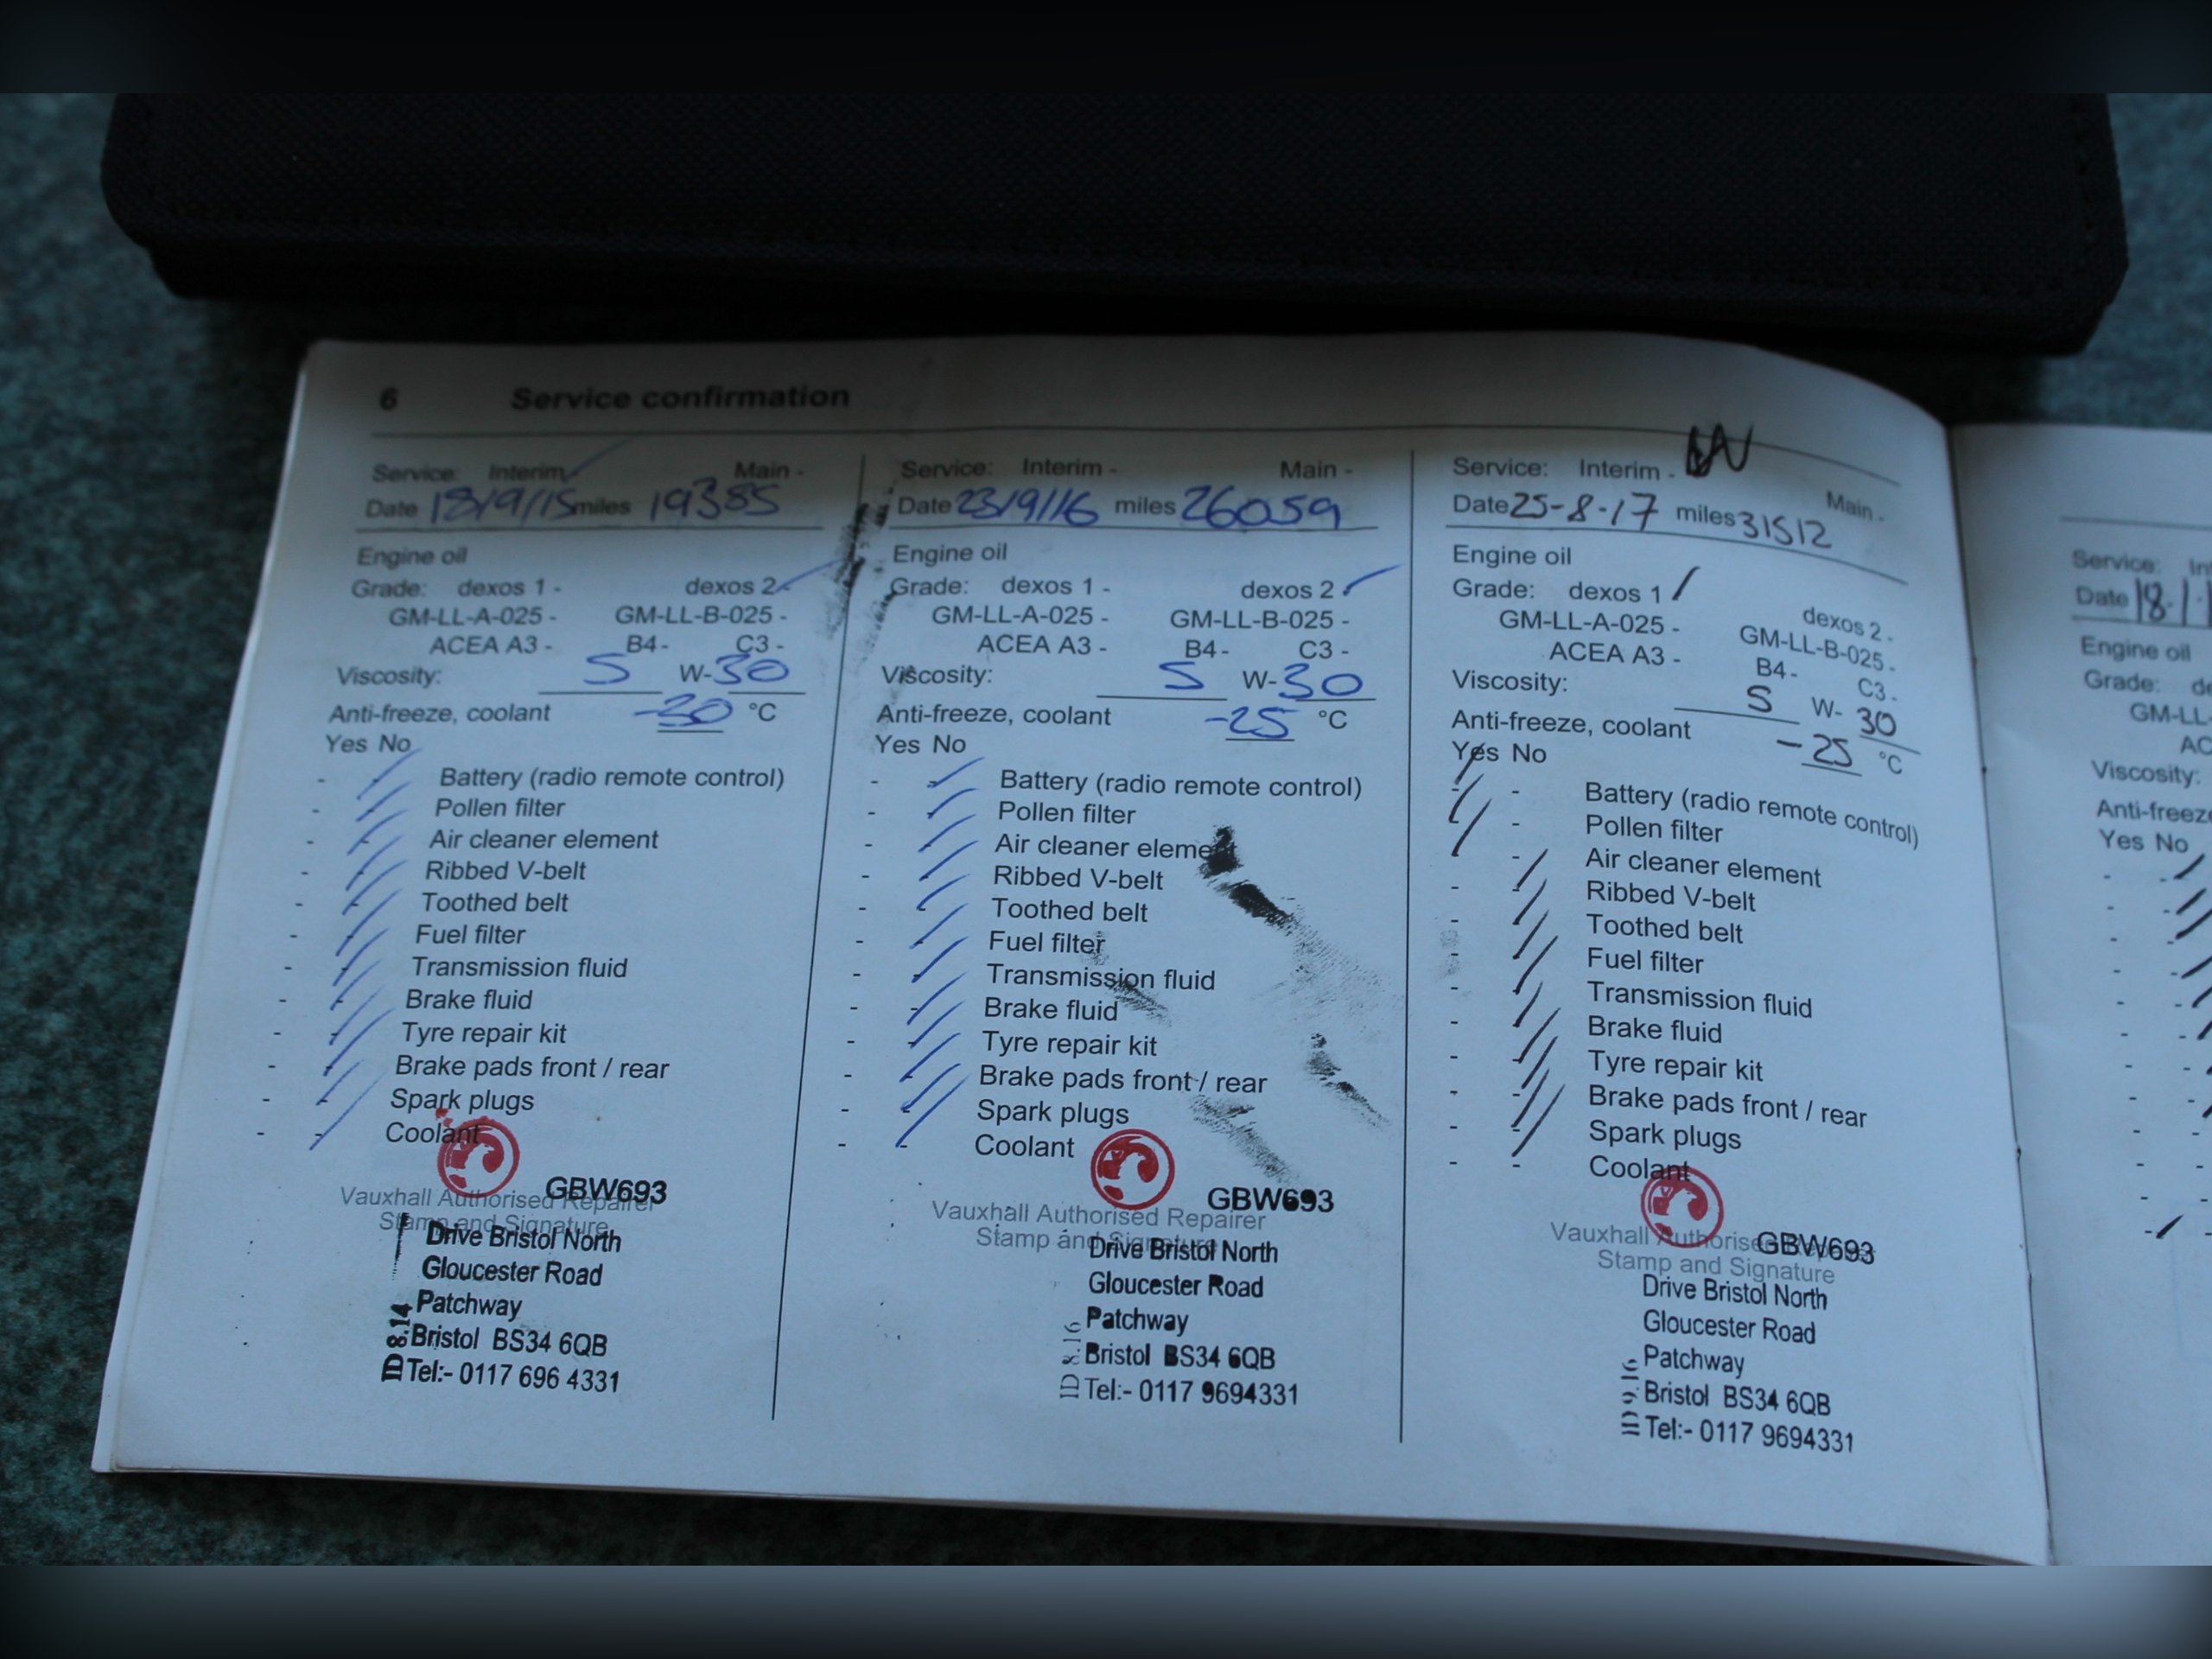 6 Service confirmation
Service: Interim Main -
Date 18/9/15 miles 19385
Engine oil
Grade: dexos 1 - dexos 2
GM-LL-A-025 - GM-LL-B-025 -
ACEA A3 - B4 - C3 -
Viscosity: 5 W-30
Anti-freeze, coolant -30 °C
Yes No
- Battery (radio remote control)
- Pollen filter
- Air cleaner element
- Ribbed V-belt
- Toothed belt
- Fuel filter
- Transmission fluid
- Brake fluid
- Tyre repair kit
- Brake pads front / rear
- Spark plugs
- Coolant
GBW693
Vauxhall Authorised Repairer
Stamp and Signature
Drive Bristol North
Gloucester Road
Patchway
Bristol BS34 6QB
Tel:- 0117 696 4331
ID 8.14
Service: Interim - Main -
Date 23/9/16 miles 26059
Engine oil
Grade: dexos 1 - dexos 2
GM-LL-A-025 - GM-LL-B-025 -
ACEA A3 - B4 - C3 -
Viscosity: 5 W-30
Anti-freeze, coolant -25 °C
Yes No
- Battery (radio remote control)
- Pollen filter
- Air cleaner element
- Ribbed V-belt
- Toothed belt
- Fuel filter
- Transmission fluid
- Brake fluid
- Tyre repair kit
- Brake pads front / rear
- Spark plugs
- Coolant
GBW693
Vauxhall Authorised Repairer
Stamp and Signature
Drive Bristol North
Gloucester Road
Patchway
Bristol BS34 6QB
Tel:- 0117 9694331
Service: Interim - Main -
Date 25-8-17 miles 31512
Engine oil
Grade: dexos 1 dexos 2 -
GM-LL-A-025 - GM-LL-B-025 -
ACEA A3 - B4 - C3 -
Viscosity: 5 W- 30
Anti-freeze, coolant -25 °C
Yes No
- Battery (radio remote control)
- Pollen filter
- Air cleaner element
- Ribbed V-belt
- Toothed belt
- Fuel filter
- Transmission fluid
- Brake fluid
- Tyre repair kit
- Brake pads front / rear
- Spark plugs
- Coolant
GBW693
Vauxhall Authorised Repairer
Stamp and Signature
Drive Bristol North
Gloucester Road
Patchway
Bristol BS34 6QB
Tel:- 0117 9694331
Service:
Date 18-1
Engine oil
Grade:
GM-LL-
Viscosity:
Yes No